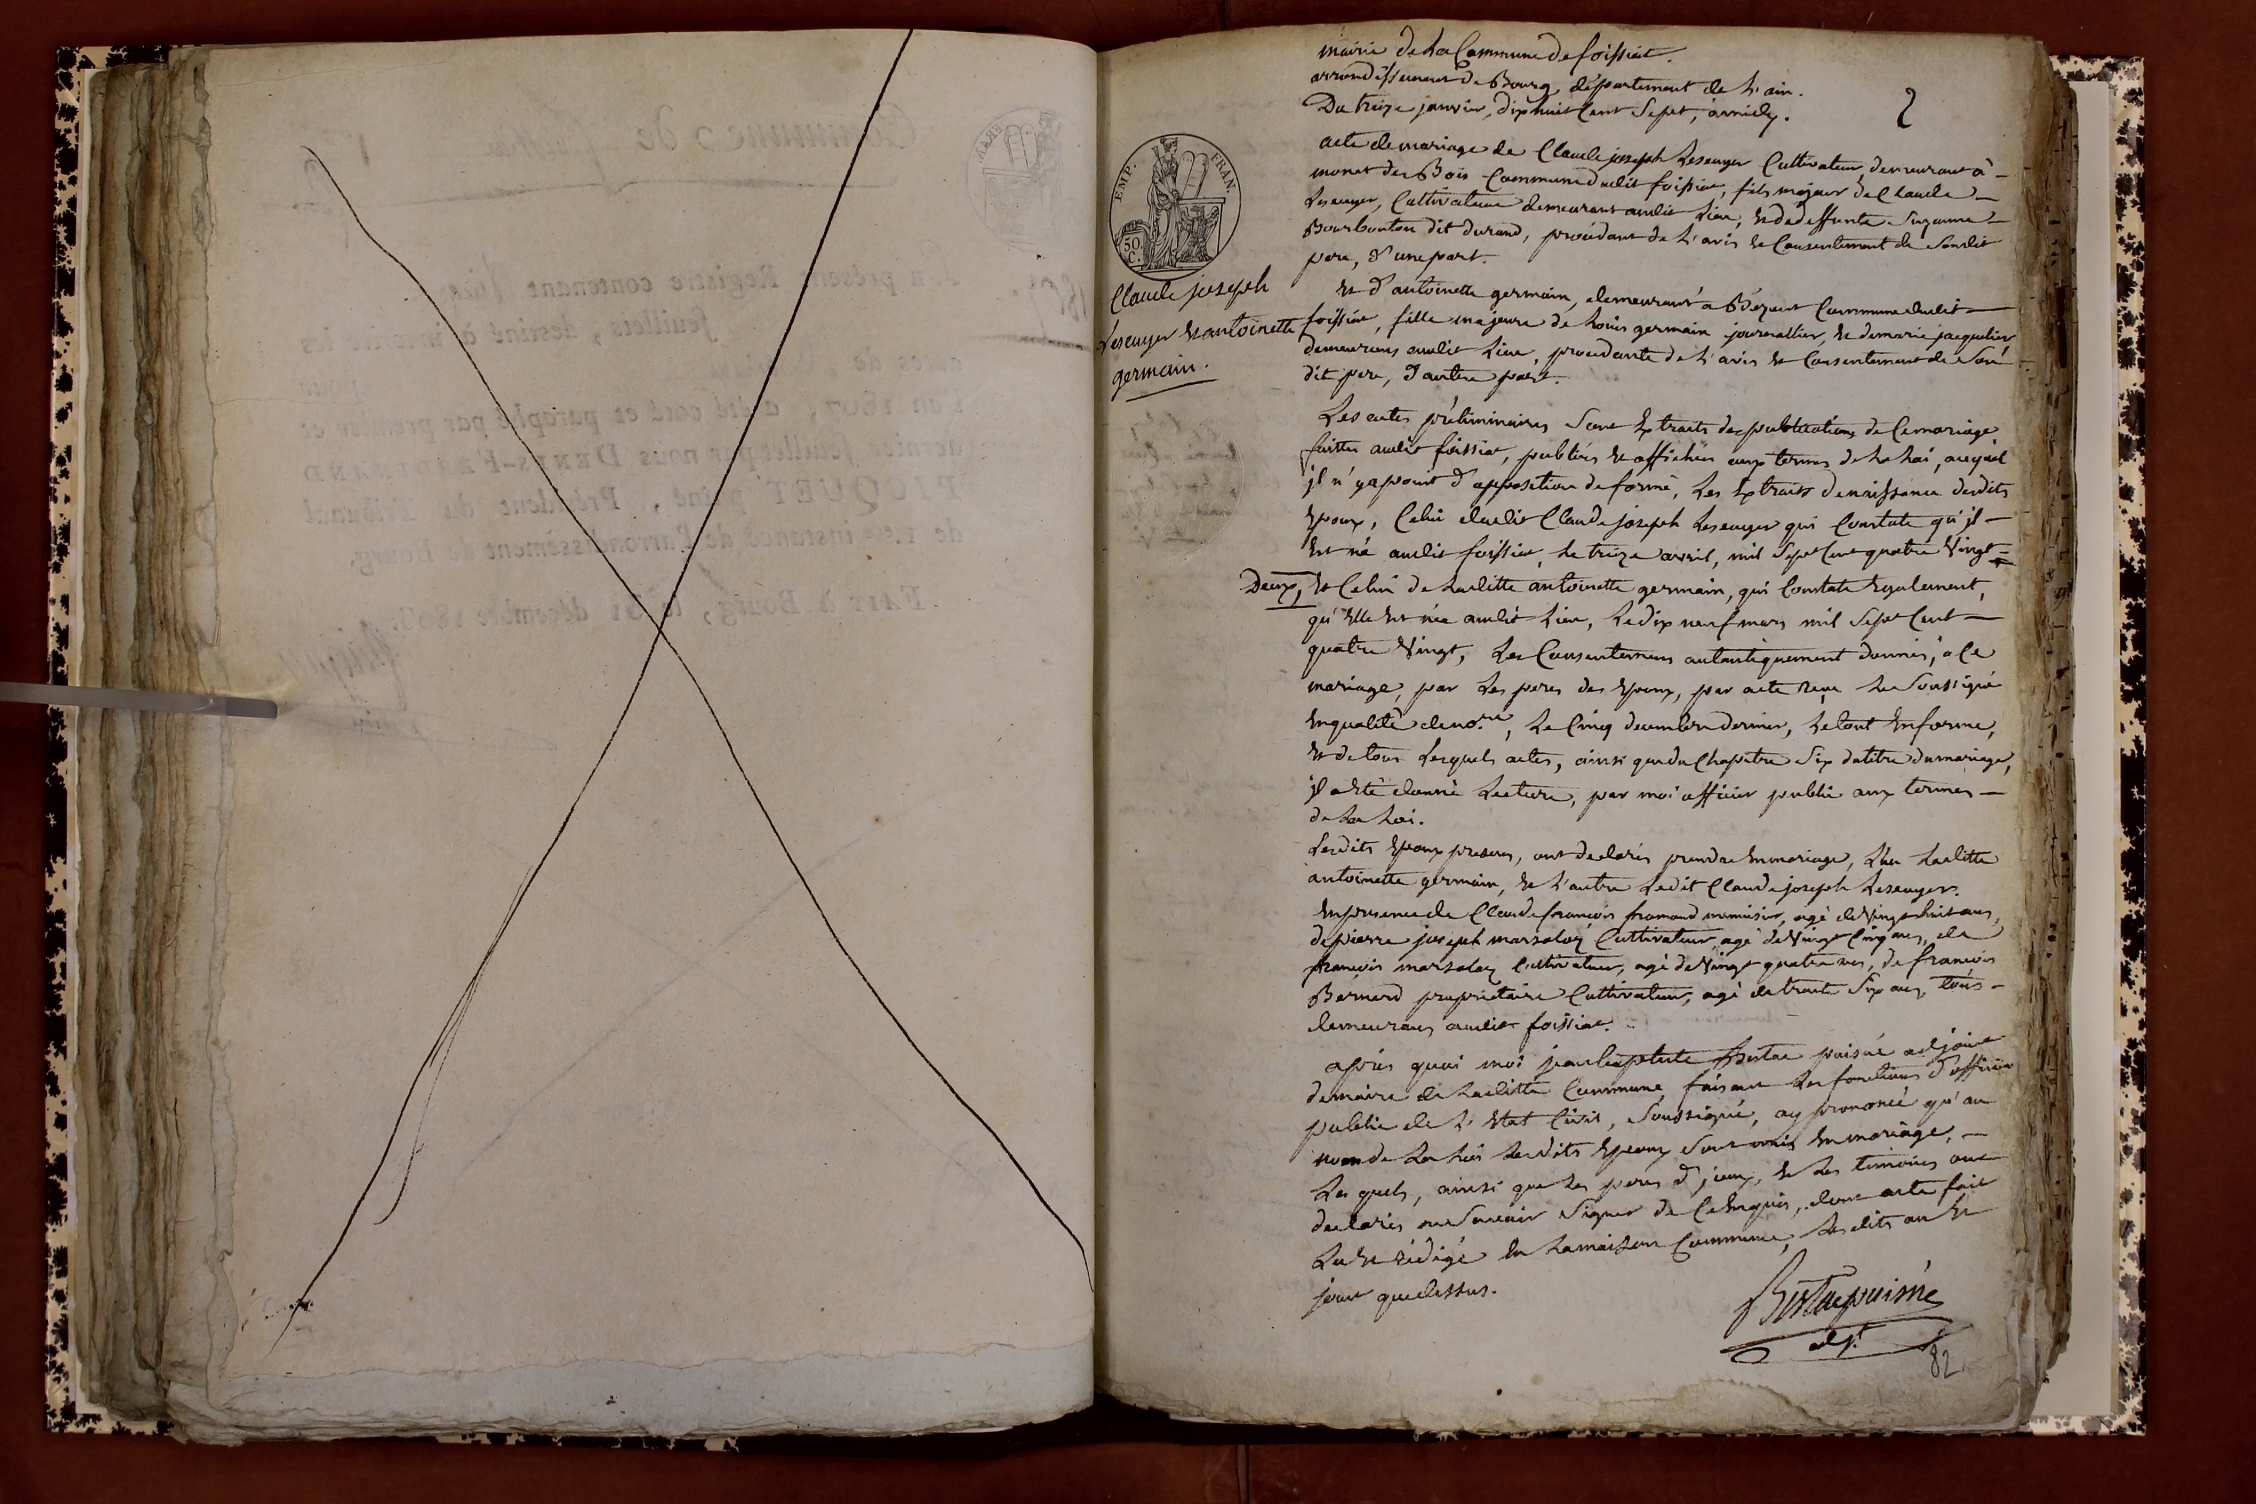 mairie de La Commune de foissiat.
arrondissement de Bourg département de L'ain.
Du treize janvier, dix huit Cent Sept, à midy.
2
acte de mariage de Claude joseph Lescuyer Cultivateur, demeurant à
monet des Bois Commune dudit foissiat, fils majeur de Claude
Lescuyer, Cultivateur demeurant audit Lieu, et de deffunte Suzanne
Bourbouton dit durand, procédant de L'avis et Consentement de Sondit
pere, d'une part.
EMP. FRAN.
50 C.
Claude joseph
Lescuyer et antoinette
germain.
et d'antoinette germain, demeurant à Bézent Commune dudit
foissiat, fille majeure de Louis germain journallier, et de marie jacquelier,
demeurans audit Lieu, procédante de L'avis et Consentement de Son
dit pere, d'autre part.
Les actes préliminaires Sont Extraits des publications de Ce mariage
faittes audit foissiat, publiées et affichées aux termes de La Loi, auquel
il n'y a point d'opposition de formé, Les Extraits de naissance desdits
Epoux, Celui dudit Claude joseph Lescuyer qui Constate qu'il
est né audit foissiat, Le treize avril, mil Sept Cent quatre Vingt
Deux, et Celui de Laditte antoinette germain, qui Constate Egalement,
qu'Elle est née audit Lieu, Le dix neuf mars mil Sept Cent
quatre Vingt, Les Consentemens autantiquement donnés, à Ce
mariage, par Les peres des Epoux, par acte reçu Le Soussigné
En qualité de no.re, Le Cinq decembre dernier, Le tout En forme,
et de tous Lesquels actes, ainsi que du Chapitre Six du titre du mariage,
il a Eté donné Lecture, par moi officier public aux termes
de La Loi.
Lesdits Epoux presens, ont declarés prendre En mariage, L'un Laditte
antoinette germain, et L'autre Ledit Claude joseph Lescuyer.
En presence de Claude francois framond menuisier, agé de Vingt huit ans,
de pierre joseph marsolay Cultivateur, agé de Vingt Cinq ans, de
francois marsolay Cultivateur, agé de Vingt quatre ans, de francois
Bernard propriétaire Cultivateur, agé de trente Six ans, tous
demeurans audit foissiat.
après quoi moi jean baptiste puisné adjoint
de maire de Laditte Commune, faisant Les fonctions d'officier
public de L'Etat Civil, Soussigné, ay prononcé qu'au
nom de La Loi Lesdits Epoux Sont unis En mariage,
Lesquels, ainsi que Les peres d'iceux, et Les témoins ont
declarés ne Savoir Signer de Ce Enquis, dont acte fait
Lu et rédigé En La maison Commune, Lesdits an et
jour que dessus.
puisné
adj.t
82